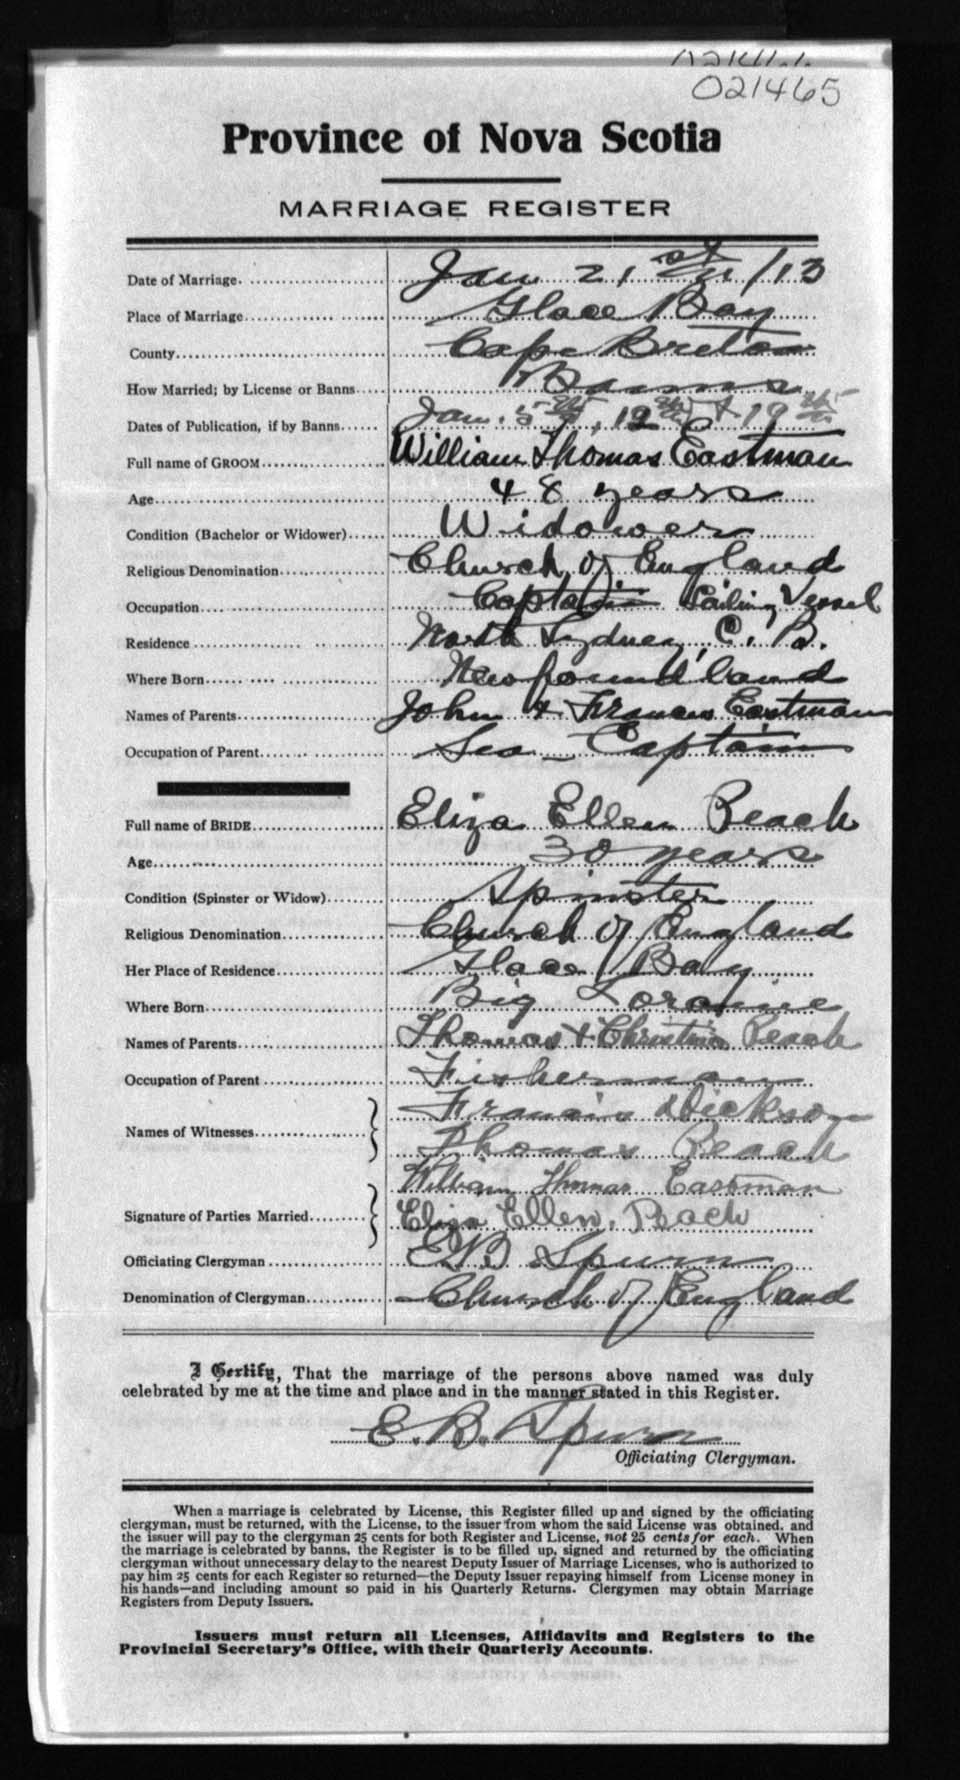 021465
Province of Nova Scotia
MARRIAGE REGISTER
Date of Marriage. Jan 21st /13
Place of Marriage Glace Bay
County Cape Breton
How Married; by License or Banns Banns
Dates of Publication, if by Banns Jan. 5th, 12th & 19th
Full name of GROOM William Thomas Eastman
Age 48 years
Condition (Bachelor or Widower) Widower
Religious Denomination Church of England
Occupation Captain Sailing Vessel
Residence North Sydney, C. B.
Where Born Newfoundland
Names of Parents John & Frances Eastman
Occupation of Parent Sea Captain
Full name of BRIDE Eliza Ellen Peach
Age 30 years
Condition (Spinster or Widow) Spinster
Religious Denomination Church of England
Her Place of Residence Glace Bay
Where Born Big Loraine
Names of Parents Thomas & Christina Peach
Occupation of Parent Fisherman
Names of Witnesses Francis Dickson
Thomas Peach
Signature of Parties Married William Thomas Eastman
Eliza Ellen. Peach
Officiating Clergyman E B Spurr
Denomination of Clergyman Church of England
I Certify, That the marriage of the persons above named was duly
celebrated by me at the time and place and in the manner stated in this Register.
E. B. Spurr
Officiating Clergyman.
When a marriage is celebrated by License, this Register filled up and signed by the officiating
clergyman, must be returned, with the License, to the issuer from whom the said License was obtained, and
the issuer will pay to the clergyman 25 cents for both Register and License, not 25 cents for each. When
the marriage is celebrated by banns, the Register is to be filled up, signed and returned by the officiating
clergyman without unnecessary delay to the nearest Deputy Issuer of Marriage Licenses, who is authorized to
pay him 25 cents for each Register so returned—the Deputy Issuer repaying himself from License money in
his hands—and including amount so paid in his Quarterly Returns. Clergymen may obtain Marriage
Registers from Deputy Issuers.
Issuers must return all Licenses, Affidavits and Registers to the
Provincial Secretary's Office, with their Quarterly Accounts.